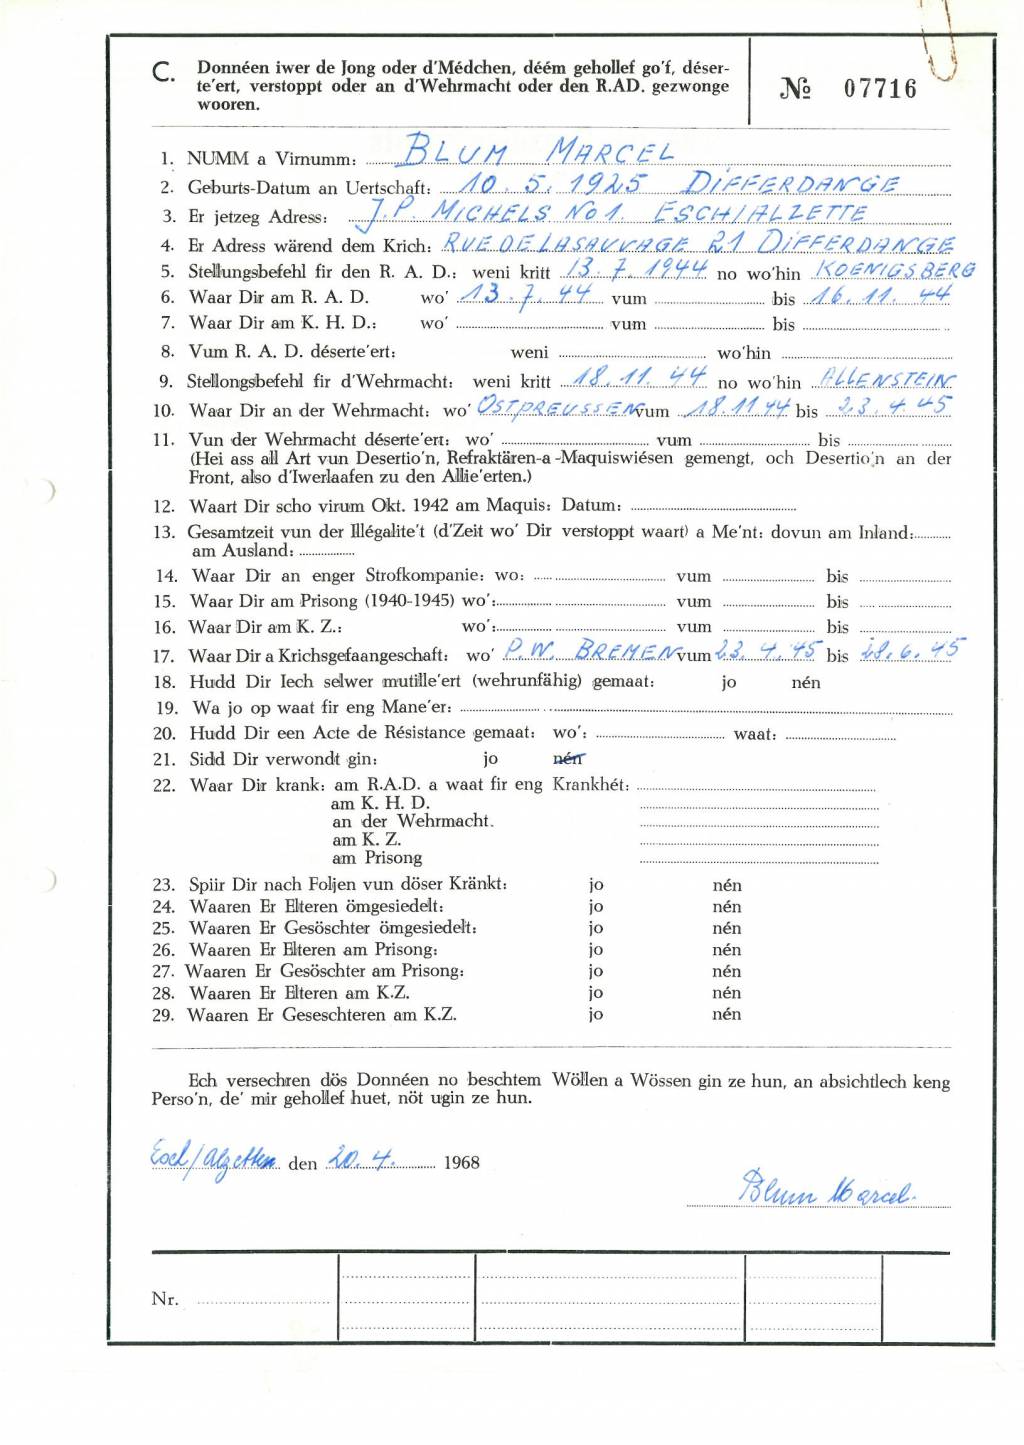 C. Donnéen iwer de Jong oder d'Médchen, déém gehollef go'f, déser-
te'ert, verstoppt oder an d'Wehrmacht oder den R.AD. gezwonge
wooren.
№ 07716
1. NUMM a Virnumm: BLUM MARCEL
2. Geburts-Datum an Uertschaft: 10. 5. 1925 DIFFERDANGE
3. Er jetzeg Adress: J.P. MICHELS No 1. ESCH/ALZETTE
4. Er Adress wärend dem Krich: RUE DE LASAUVAGE 21 DIFFERDANGE
5. Stellungsbefehl fir den R. A. D.: weni kritt 13. 7. 1944 no wo'hin KOENIGSBERG
6. Waar Dir am R. A. D. wo' 13. 7. 44 vum bis 16. 11. 44
7. Waar Dir am K. H. D.: wo' vum bis
8. Vum R. A. D. déserte'ert: weni wo'hin
9. Stellongsbefehl fir d'Wehrmacht: weni kritt 18. 11. 44 no wo'hin ALLENSTEIN
10. Waar Dir an der Wehrmacht: wo' OSTPREUSSEN vum 18. 11 44 bis 23. 4. 45
11. Vun der Wehrmacht déserte'ert: wo' vum bis
(Hei ass all Art vun Desertio'n, Refraktären-a -Maquiswiésen gemengt, och Desertio'n an der
Front, also d'Iwerlaafen zu den Allie'erten.)
12. Waart Dir scho virum Okt. 1942 am Maquis: Datum:
13. Gesamtzeit vun der Illégalite't (d'Zeit wo' Dir verstoppt waart) a Me'nt: dovun am Inland:
am Ausland:
14. Waar Dir an enger Strofkompanie: wo: vum bis
15. Waar Dir am Prisong (1940-1945) wo': vum bis
16. Waar Dir am K. Z.: wo': vum bis
17. Waar Dir a Krichsgefaangeschaft: wo' P.W. BREMEN vum 23. 4. 45 bis 28. 6. 45
18. Hudd Dir Iech selwer mutille'ert (wehrunfähig) gemaat: jo nén
19. Wa jo op waat fir eng Mane'er:
20. Hudd Dir een Acte de Résistance gemaat: wo': waat:
21. Sidd Dir verwondt gin: jo nén
22. Waar Dir krank: am R.A.D. a waat fir eng Krankhét:
am K. H. D.
an der Wehrmacht.
am K. Z.
am Prisong
23. Spiir Dir nach Foljen vun döser Kränkt: jo nén
24. Waaren Er Elteren ömgesiedelt: jo nén
25. Waaren Er Gesöschter ömgesiedelt: jo nén
26. Waaren Er Elteren am Prisong: jo nén
27. Waaren Er Gesöschter am Prisong: jo nén
28. Waaren Er Elteren am K.Z. jo nén
29. Waaren Er Geseschteren am K.Z. jo nén
Ech versechren dös Donnéen no beschtem Wöllen a Wössen gin ze hun, an absichtlech keng
Perso'n, de' mir gehollef huet, nöt ugin ze hun.
Esch/Alzette den 20. 4. 1968
Blum Marcel.
Nr.